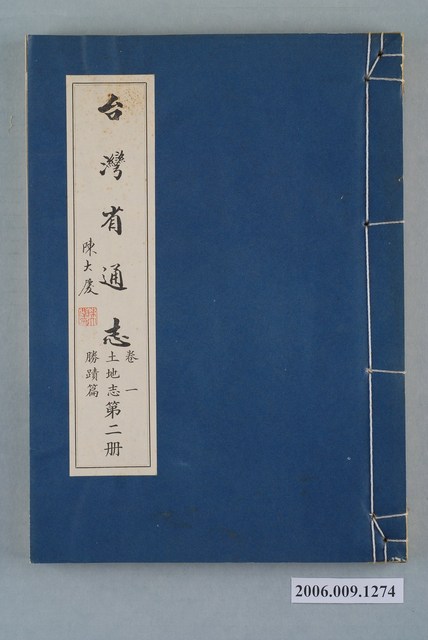 台灣省通志
陳大慶
卷一
土地志
勝蹟篇
第二册
2006.009.1274